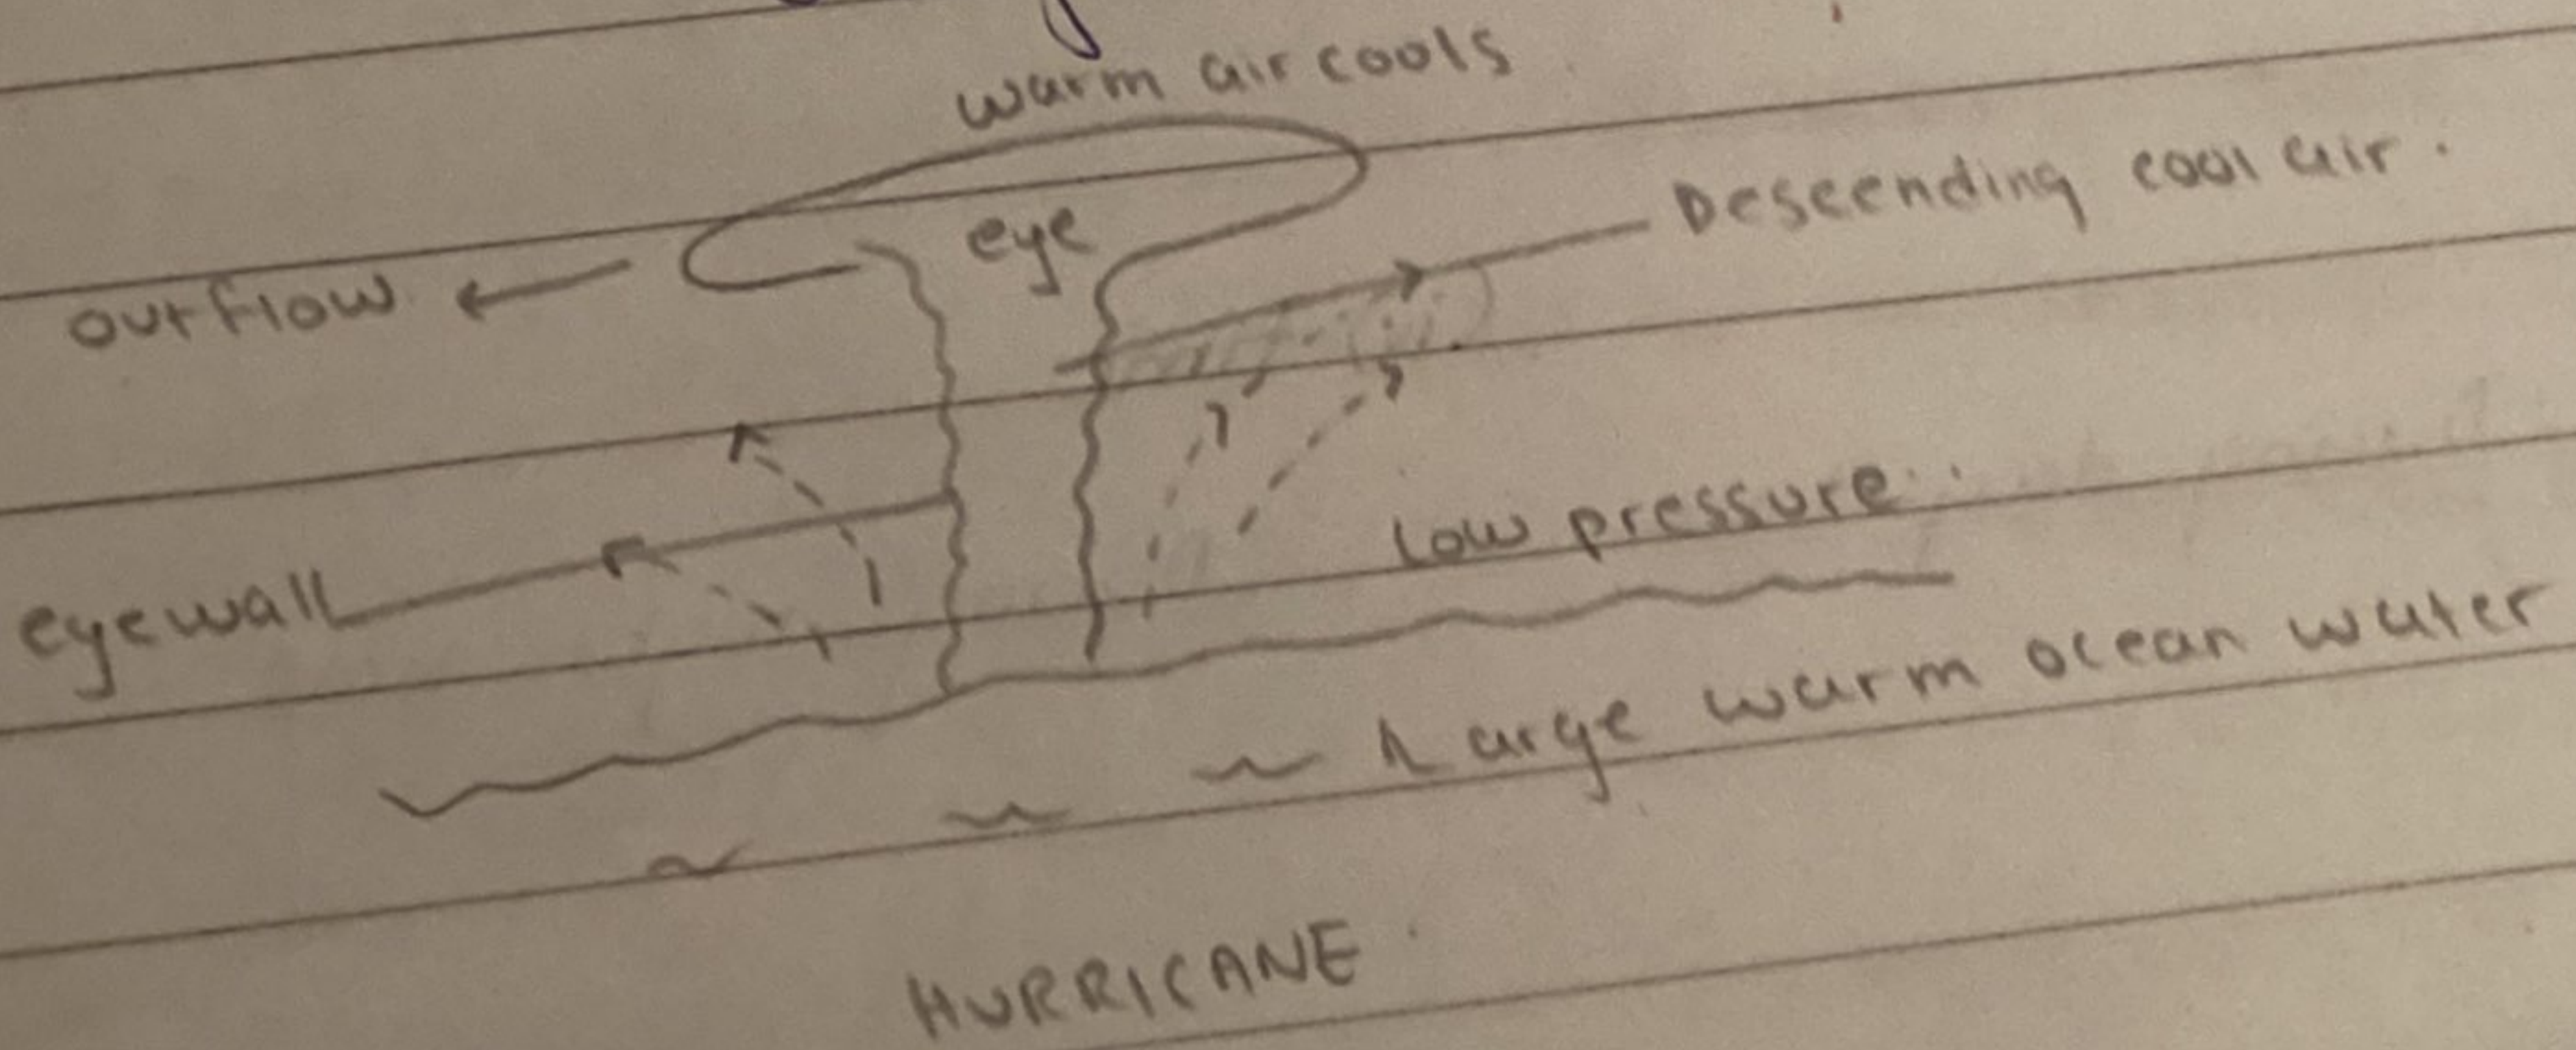 warm air cools
eye
Descending cool air.
outflow
low pressure
eyewall
Large warm ocean water
HURRICANE